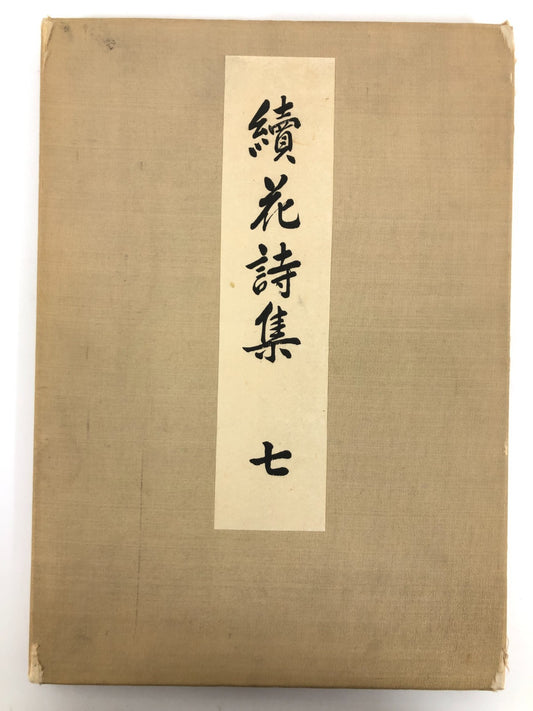 續花詩集 七